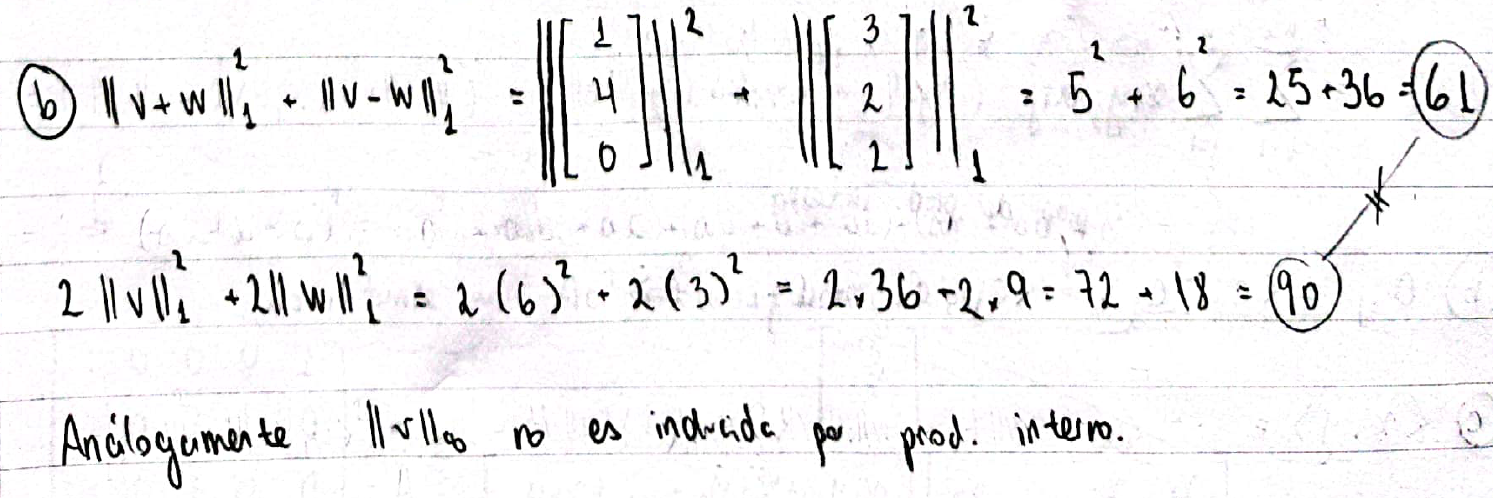 (b) ||v+w||₁² + ||v-w||₁² = ||[1 4 0]||₁² + ||[3 2 1]||₁² = 5² + 6² = 25+36 = 61
2||v||₁² + 2||w||₁² = 2(6)² + 2(3)² = 2.36 + 2.9 = 72 + 18 = 90
Análogamente ||v||∞ no es inducida por prod. interno.